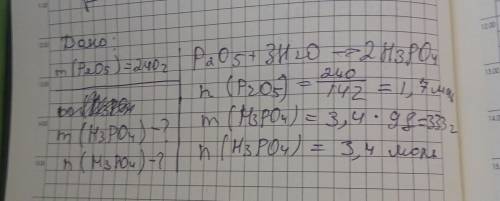 Дано:
m(P2O5)=240г
m(H3PO4)-?
n(H3PO4)-?
P2O5+3H2O → 2H3PO4
n(P2O5) = 240/142 = 1,7 мол
m(H3PO4) = 3,4 · 98=333г
n(H3PO4) = 3,4 моль